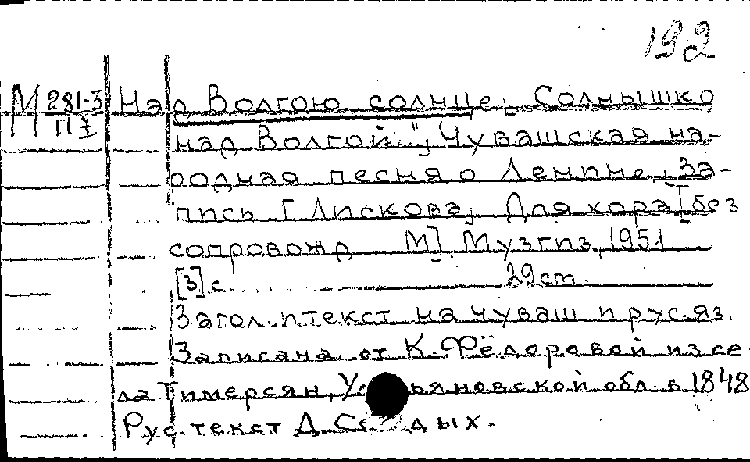 192
М 281-3 Над Волгою солнце „Солнышко
П I над Волгой", Чувашская на-
родная песня о Ленине, За-
пись Г Лискова, Для хора [без
сопровожд М], Музгиз, 1951
[3] с 29 ст
Загол. и текст на чуваш и рус. яз.
Записана от К. Фёдоровой из се-
ла Тимерсян, Ульяновской обл. в 1848
Рус. текст Д. Седых.